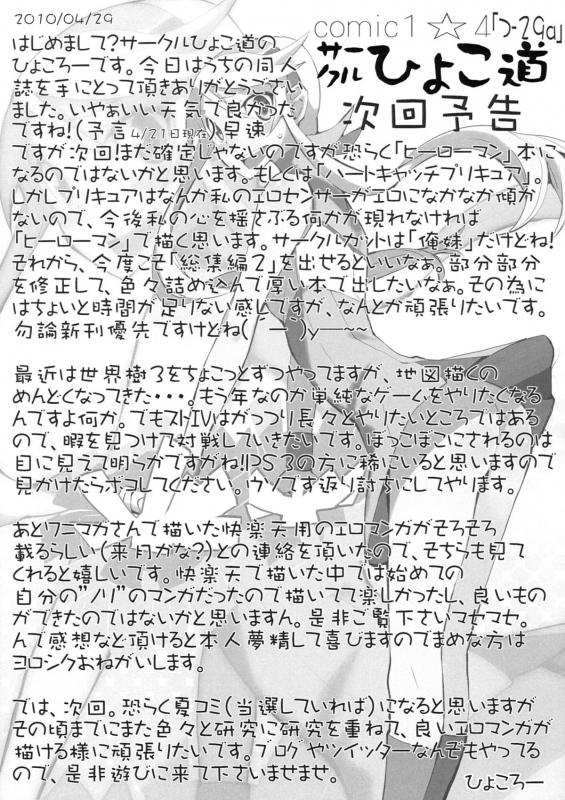 2010/04/29
comic1☆4「つ-29a」
サークル ひょこ道
次回予告
はじめまして?サークルひょこ道の
ひょころーです。今日はうちの同人
誌を手にとって頂きありがとうござい
ました。いやぁいい天気で良かった
ですね!(予言4/21日現在)早速
ですが次回!まだ確定じゃないのですが恐らく「ヒーローマン」本に
なるのではないかと思います。もしくは「ハートキャッチプリキュア」。
しかしプリキュアはなんか私のエロセンサーがエロになかなか傾か
ないので、今後私の心を揺さぶる何かが現れなければ
「ヒーローマン」で描く思います。サークルカットは「俺妹」だけどね!
それから、今度こそ「総集編2」を出せるといいなぁ。部分部分
を修正して、色々詰め込んで厚い本で出したいなぁ。その為に
はちょいと時間が足りない感じですが、なんとか頑張りたいです。
勿論新刊優先ですけどね(´ー`)y─~~
最近は世界樹3をちょこっとずつやってますが、地図描くの
めんどくなってきた・・・。もう年なのか単純なゲームをやりたくなる
んですよ何か。でもストIVはがっつり長々とやりたいところではある
ので、暇を見つけて対戦していきたいです。ぼっこぼこにされるのは
目に見えて明らかですがね!PS3の方に稀にいると思いますので
見かけたらボコしてください。ウソです返り討ちにしてやります。
あとワニマガさんで描いた快楽天用のエロマンガがそろそろ
載るらしい(来月かな?)との連絡を頂いたので、そちらも見て
くれると嬉しいです。快楽天で描いた中では始めての
自分の"ノリ"のマンガだったので描いてて楽しかったし、良いもの
ができたのではないかと思いますん。是非ご覧下さいマセマセ。
んで感想など頂けると本人夢精して喜びますのでまめな方は
ヨロシクおねがいします。
では、次回。恐らく夏コミ(当選していれば)になると思いますが
その頃までにまた色々と研究に研究を重ねて、良いエロマンガが
描ける様に頑張りたいです。ブログやツイッターなんぞもやってる
ので、是非遊びに来て下さいませませ。
ひょころー